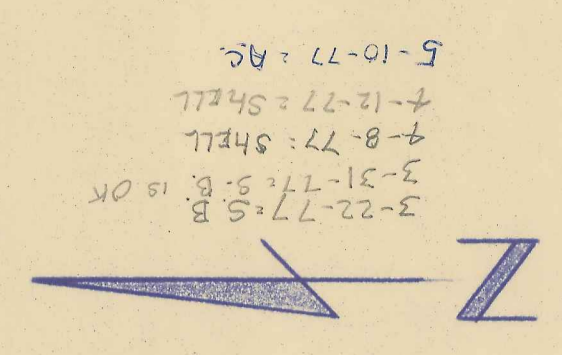 N
3-22-77 = S.B.
3-31-77 = S.B. IS OK
4-8-77 = SHELL
4-12-77 = SHELL
5-10-77 = A.C.